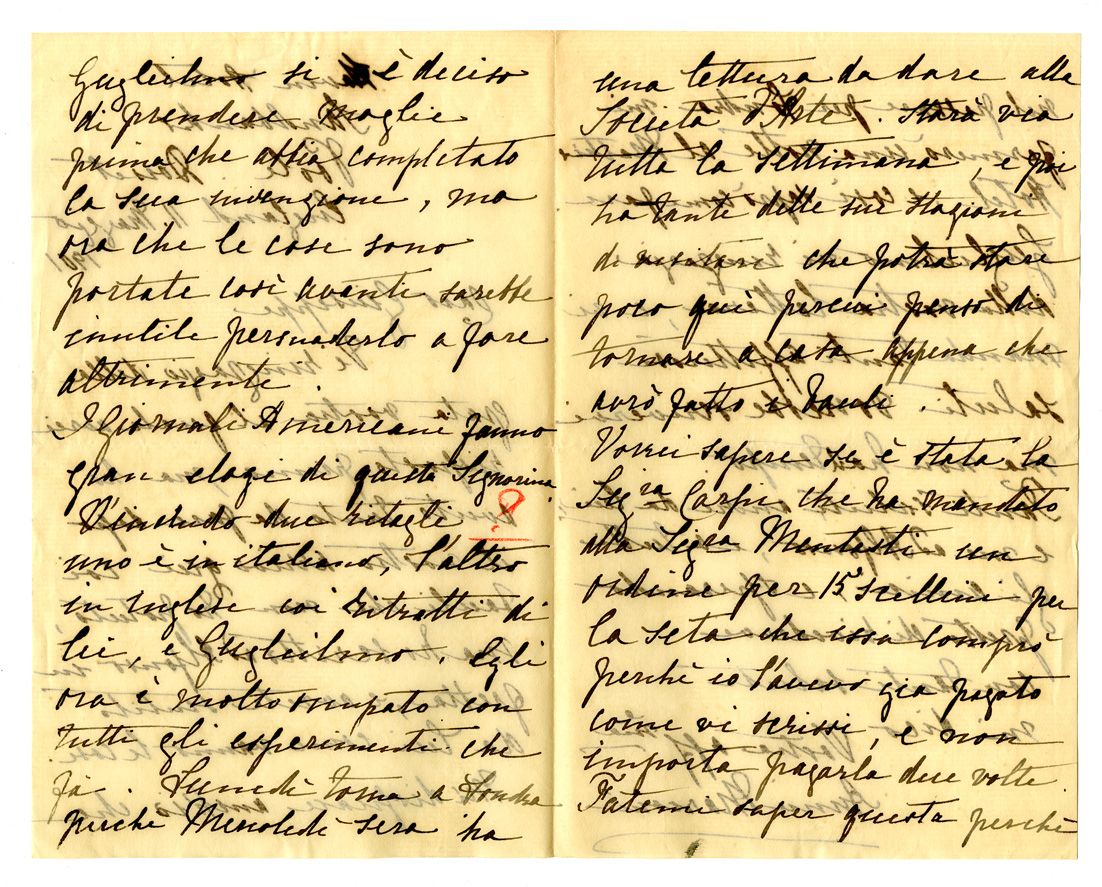 Guglielmo si è deciso
di prendere moglie
prima che abbia completato
la sua invenzione, ma
ora che le cose sono
portate così avanti sarebbe
inutile persuaderlo a fare
altrimente.
I Giornali Americani fanno
gran elogi di questa Signorina
V'includo due ritagli
uno è in italiano, l'altro
in Inglese coi ritratti di
lei, e Guglielmo. Egli
ora è molto occupato con
tutti gli esperimenti che
fà. Lunedì torna a Londra
perchè Mercoledì sera ha
una lettura da dare alla
Società d'Arte. Starà via
tutta la settimana, e poi
ha tante delle sue stagioni
di visitare che potrà stare
poco quì percui penso di
tornare a casa appena che
avrò fatto i bauli.
Vorrei sapere se è stata la
Sigra Carpi che ha mandato
alla Sigra Mentasti un
ordine per 15s scellini per
la seta che essa comprò
perchè io l'avevo già pagato
come vi scrissi, e non
importa pagarla due volte
Fatemi saper questa perchè